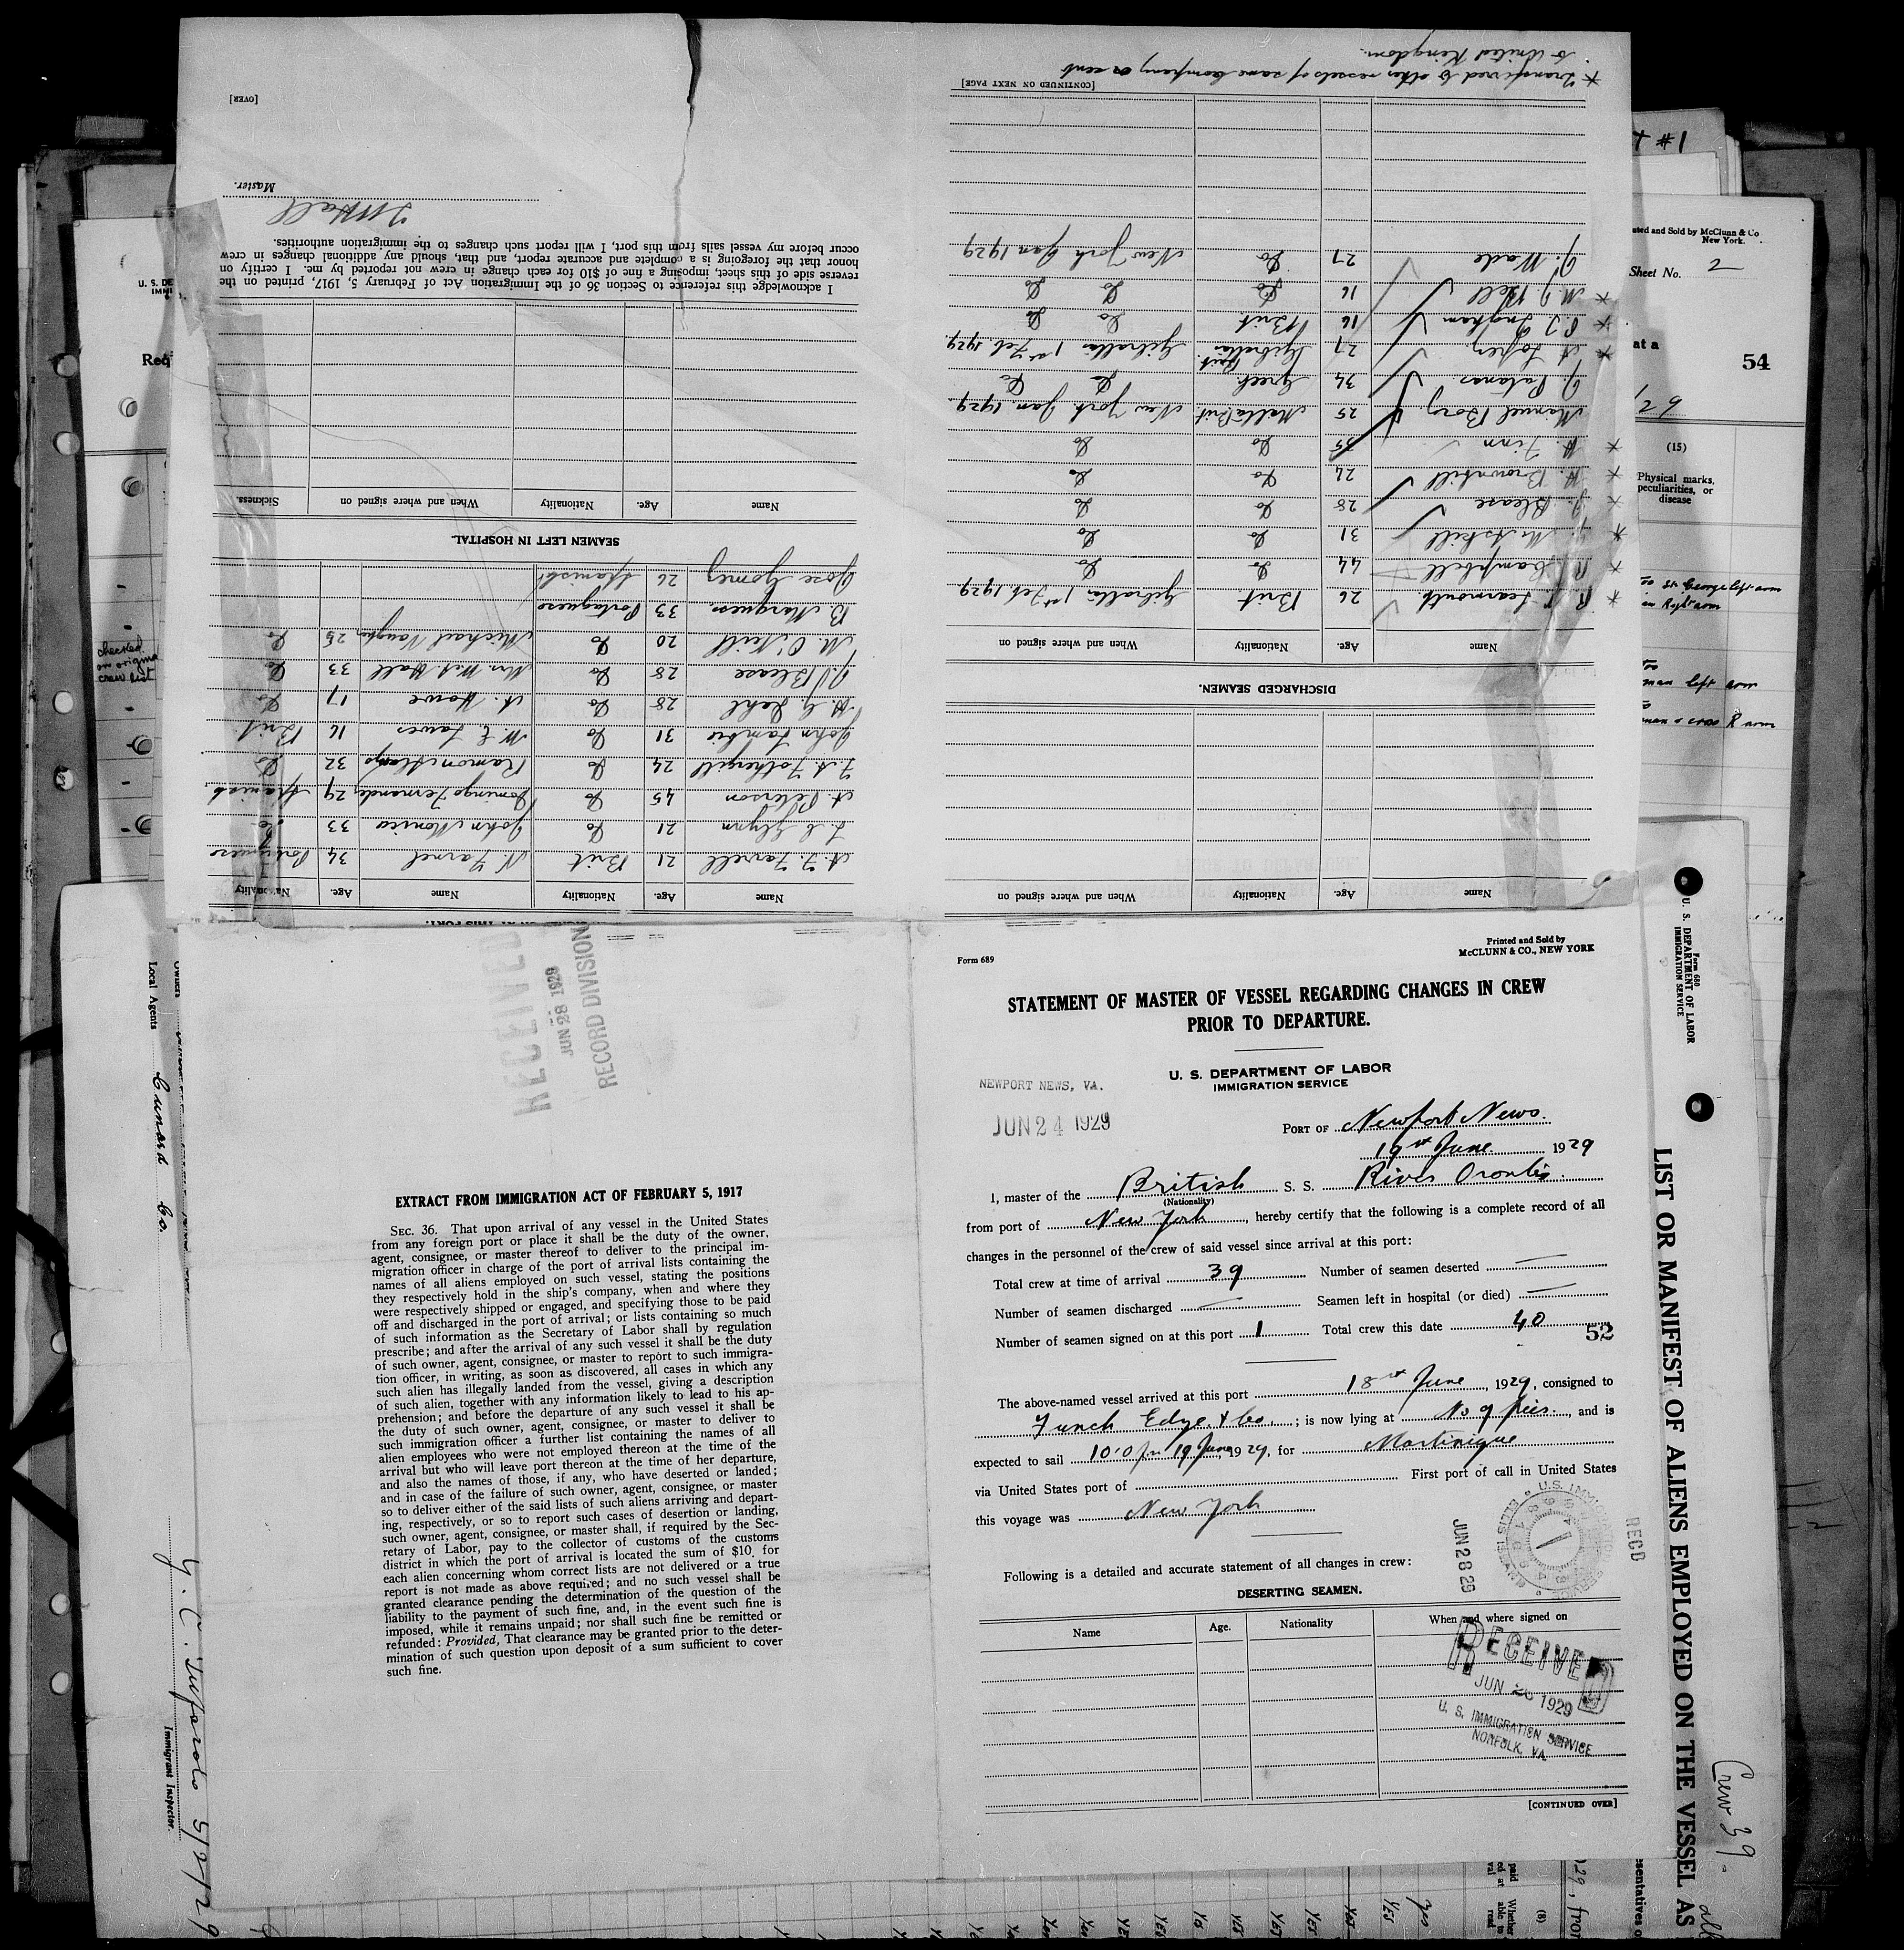 Form 689
Printed and Sold by
McCLUNN & CO., NEW YORK
STATEMENT OF MASTER OF VESSEL REGARDING CHANGES IN CREW
PRIOR TO DEPARTURE.
U. S. DEPARTMENT OF LABOR
IMMIGRATION SERVICE
NEWPORT NEWS, VA.
JUN 24 1929
PORT OF Newport News.
19th June 1929
I, master of the British S. S. River Orontes
(Nationality)
from port of New York, hereby certify that the following is a complete record of all
changes in the personnel of the crew of said vessel since arrival at this port:
Total crew at time of arrival 39 Number of seamen deserted —
Number of seamen discharged — Seamen left in hospital (or died) —
Number of seamen signed on at this port 1 Total crew this date 40
52
The above-named vessel arrived at this port 18th June, 1929, consigned to
Funch Edye & Co. ; is now lying at No 9 pier., and is
expected to sail 10.0 pm 19 June 1929, for Martinique
via United States port of First port of call in United States
this voyage was New York
Following is a detailed and accurate statement of all changes in crew:
DESERTING SEAMEN.
Name Age. Nationality When and where signed on
[CONTINUED OVER]
JUN 28 29
RECD
RECEIVED
JUN 1929
U. S. IMMIGRATION SERVICE
NORFOLK, VA.
RECEIVED
JUN 28 1929
RECORD DIVISION
EXTRACT FROM IMMIGRATION ACT OF FEBRUARY 5, 1917
SEC. 36. That upon arrival of any vessel in the United States
from any foreign port or place it shall be the duty of the owner,
agent, consignee, or master thereof to deliver to the principal im-
migration officer in charge of the port of arrival lists containing the
names of all aliens employed on such vessel, stating the positions
they respectively hold in the ship's company, when and where they
were respectively shipped or engaged, and specifying those to be paid
off and discharged in the port of arrival; or lists containing so much
of such information as the Secretary of Labor shall by regulation
prescribe; and after the arrival of any such vessel it shall be the duty
of such owner, agent, consignee, or master to report to such immigra-
tion officer, in writing, as soon as discovered, all cases in which any
such alien has illegally landed from the vessel, giving a description
of such alien, together with any information likely to lead to his ap-
prehension; and before the departure of any such vessel it shall be
the duty of such owner, agent, consignee, or master to deliver to
such immigration officer a further list containing the names of all
alien employees who were not employed thereon at the time of the
arrival but who will leave port thereon at the time of her departure,
and also the names of those, if any, who have deserted or landed;
and in case of the failure of such owner, agent, consignee, or master
so to deliver either of the said lists of such aliens arriving and depart-
ing, respectively, or so to report such cases of desertion or landing,
such owner, agent, consignee, or master shall, if required by the Sec-
retary of Labor, pay to the collector of customs of the customs
district in which the port of arrival is located the sum of $10 for
each alien concerning whom correct lists are not delivered or a true
report is not made as above required; and no such vessel shall be
granted clearance pending the determination of the question of the
liability to the payment of such fine, and, in the event such fine is
imposed, while it remains unpaid; nor shall such fine be remitted or
refunded: Provided, That clearance may be granted prior to the deter-
mination of such question upon deposit of a sum sufficient to cover
such fine.
Name Age. Nationality When and where signed on
DISCHARGED SEAMEN.
Name Age. Nationality When and where signed on
* R. Learmonth 26 Brit Gibraltar 1st Feb. 1929
* R. Campbell 44 Do Do
* J. McAskill 31 Do Do
* J. Blease 28 Do Do
* H. Brownhill 24 Do Do
* H. Finn 35 Do Do
Manuel Borg 25 Malta Brit. New York Jan. 1929
J. Patanos 34 Greek Do Do
* A. Lopez 27 Gibraltar Brit. Gibraltar 1st Feb. 1929
* P. J. Ingham 16 Brit Do Do
* M. J. Bell 16 Do Do Do
J. Wade 27 Do New York Jan 1929
[CONTINUED ON NEXT PAGE]
* Transferred to other vessels of same Company or sent
to United Kingdom.
Name Age. Nationality Name Age. Nationality
A. F. Farrell 21 Brit N. Farnel 34 Portuguese
L. C. Glynn 21 Do John Monico 33 Do
A. Peterson 45 Do Domingo Fernandez 29 Spanish
F. A. Fothergill 24 Do Ramon Alonzo 32 Do
John Lambie 31 Do W. E. Lawes 16 Brit.
H. G. Dahl 28 Do A. Howe 17 Do
J. Blease 28 Do Mrs. W. A. Hall 33 Do
M. O'Neill 20 Do Michael Vaughan 25 Do
B. Marquess 33 Portuguese
Jose Gomez 26 Spanish
SEAMEN LEFT IN HOSPITAL.
Name Age. Nationality When and where signed on Sickness.
I acknowledge this reference to Section 36 of the Immigration Act of February 5, 1917, printed on the
reverse side of this sheet, imposing a fine of $10 for each change in crew not reported by me. I certify on
honor that the foregoing is a complete and accurate report, and that, should any additional changes in crew
occur before my vessel sails from this port, I will report such changes to the immigration authorities.
Hall
Master.
[OVER]
# 1
McClunn & Co
New York.
Sheet No. 2
at a
54
(15)
Physical marks,
peculiarities, or
disease
St George left arm
Right arm
left arm
cross R arm
checked
on original
crew list
U. S. DE
IMMI
Req
Form 680
U. S. DEPARTMENT OF LABOR
IMMIGRATION SERVICE
LIST OR MANIFEST OF ALIENS EMPLOYED ON THE VESSEL AS
Crew 39
Owners
Local Agents Cunard Co.
Immigrant Inspector.
Whether
able to
read
(8)
Yes
Yes
Yes
Yes
Yes
Yes